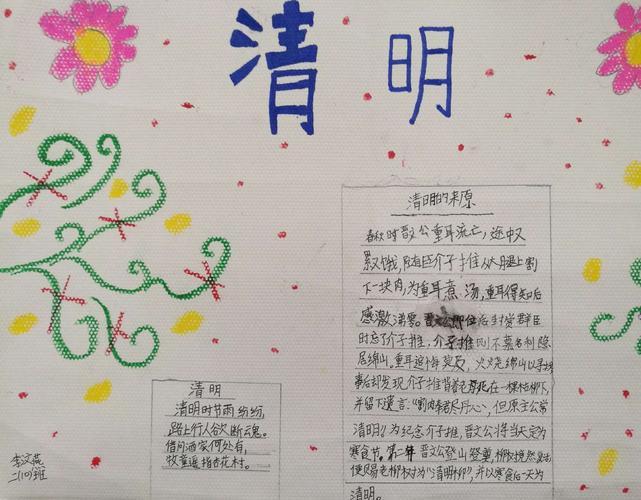 清明
清明的来原
春秋时晋文公重耳流亡，途中又
累又饿，随臣介子推从大腿上割
下一块肉，为重耳煮汤，重耳得知后
感激涕零。晋文公即位后封赏群臣
时忘了介子推，介子推则不慕名利隐
居绵山。重耳追悔莫及，火烧绵山以寻
事后却发现介子推背靠死在一棵柳下，
并留下遗言："割肉奉君尽丹心，但原主公常
清明"。为纪念介子推，晋文公将当天定为
寒食节。第二年晋文公登山祭奠，柳树
便赐老柳树为"清明柳"，并以寒食后一天为
清明。
清明
清明时节雨纷纷，
路上行人欲断魂。
借问酒家何处有，
牧童遥指杏花村。
李文燕
二(10)班